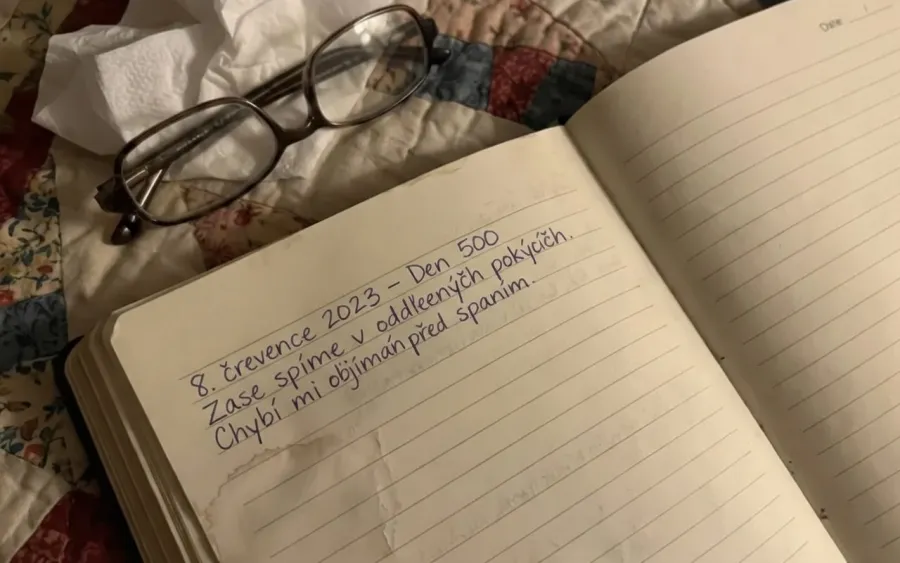 Date
8. července 2023 – Den 500
Zase spíme v oddľeených pokýcíčh.
Chybí mi objímán před spaním.